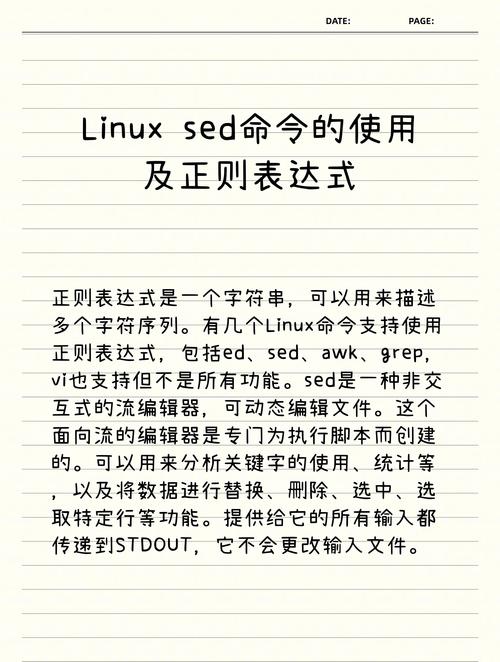 DATE: PAGE:
Linux sed命令的使用
及正则表达式
正则表达式是一个字符串，可以用来描述
多个字符序列。有几个Linux命令支持使用
正则表达式，包括ed、sed、awk、grep，
vi也支持但不是所有功能。sed是一种非交
互式的流编辑器，可动态编辑文件。这个
面向流的编辑器是专门为执行脚本而创建
的。可以用来分析关键字的使用、统计等
，以及将数据进行替换、删除、选中、选
取特定行等功能。提供给它的所有输入都
传递到STDOUT，它不会更改输入文件。